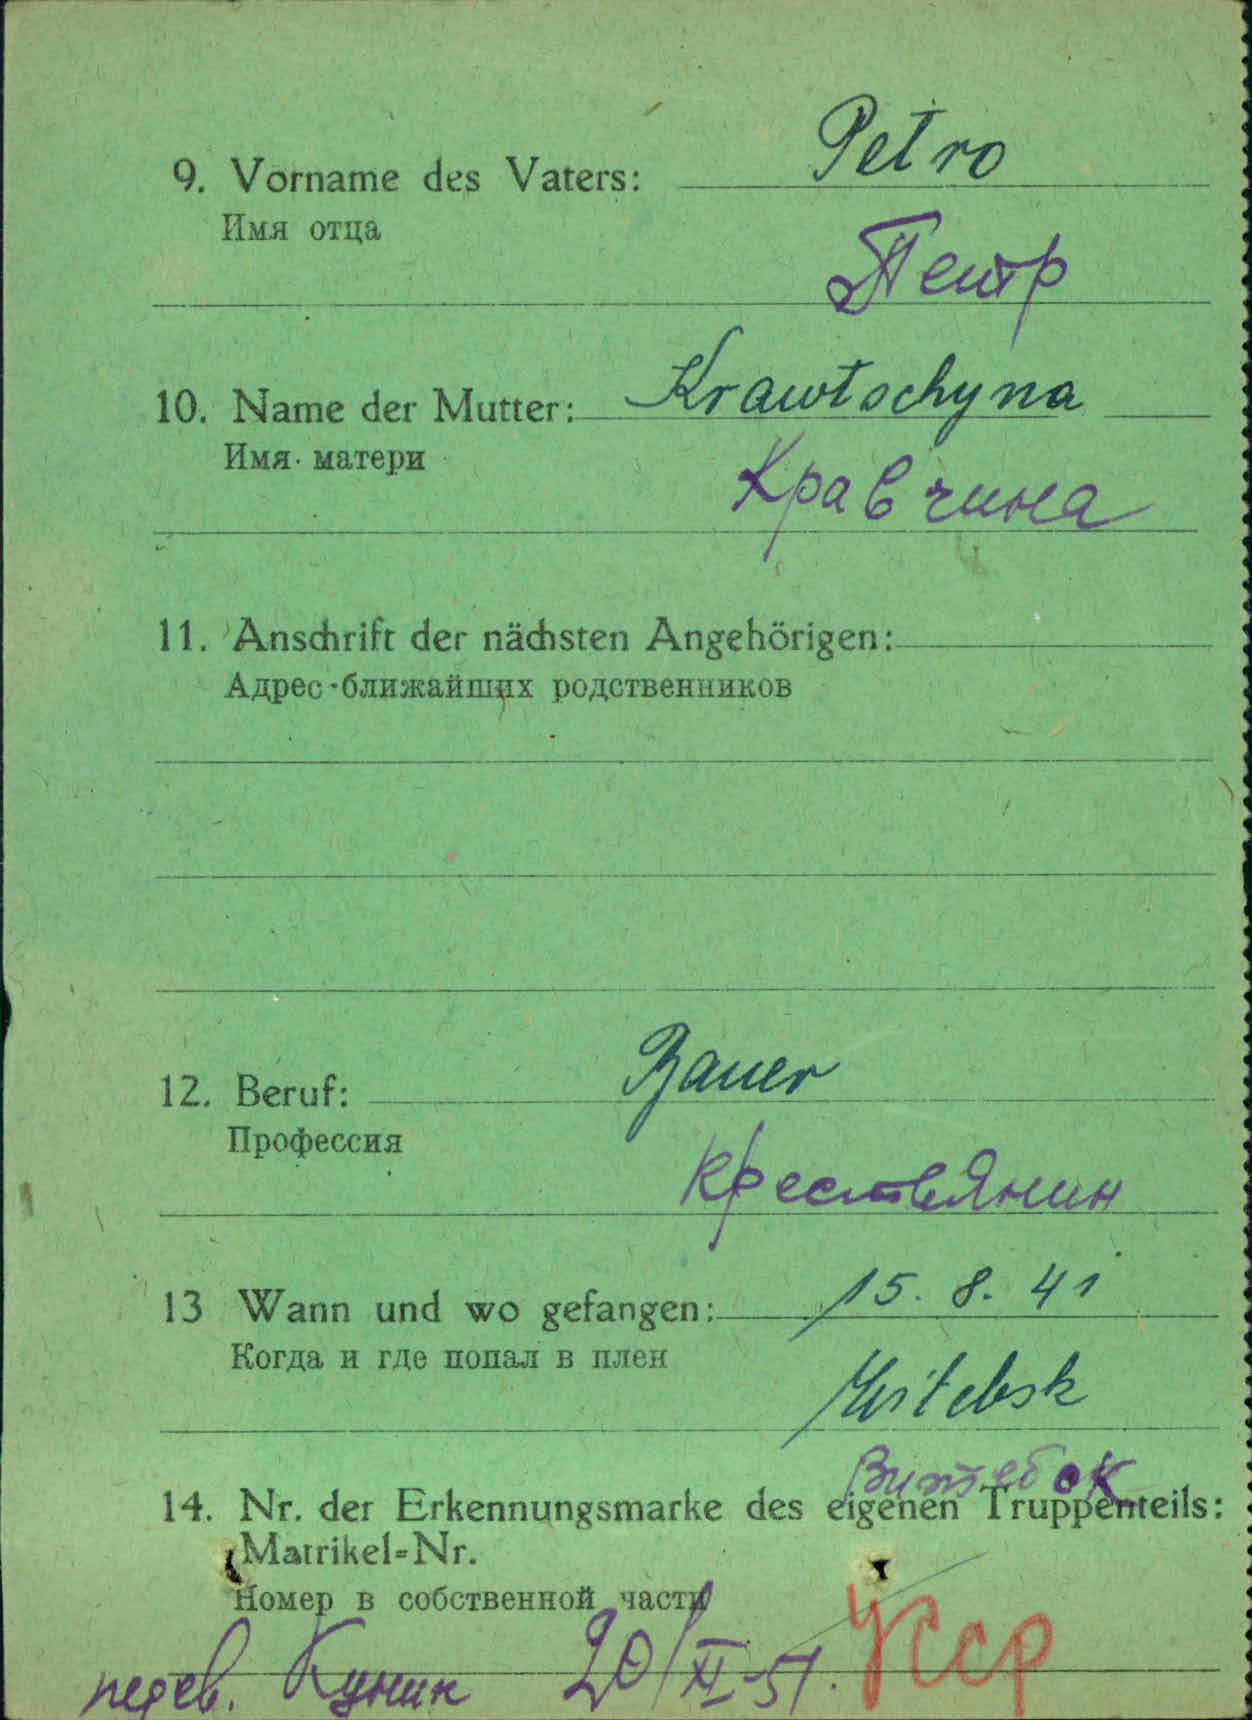 9. Vorname des Vaters: Petro
Имя отца
Петр
10. Name der Mutter: Krawtschyna
Имя матери
Кравчина
11. Anschrift der nächsten Angehörigen:
Адрес ближайших родственников
12. Beruf: Bauer
Профессия
крестьянин
13 Wann und wo gefangen: 15. 8. 41
Когда и где попал в плен
Witebsk
Витебск
14. Nr. der Erkennungsmarke des eigenen Truppenteils:
Matrikel-Nr.
Номер в собственной части
перев. Куник 20/XI-51. УССР